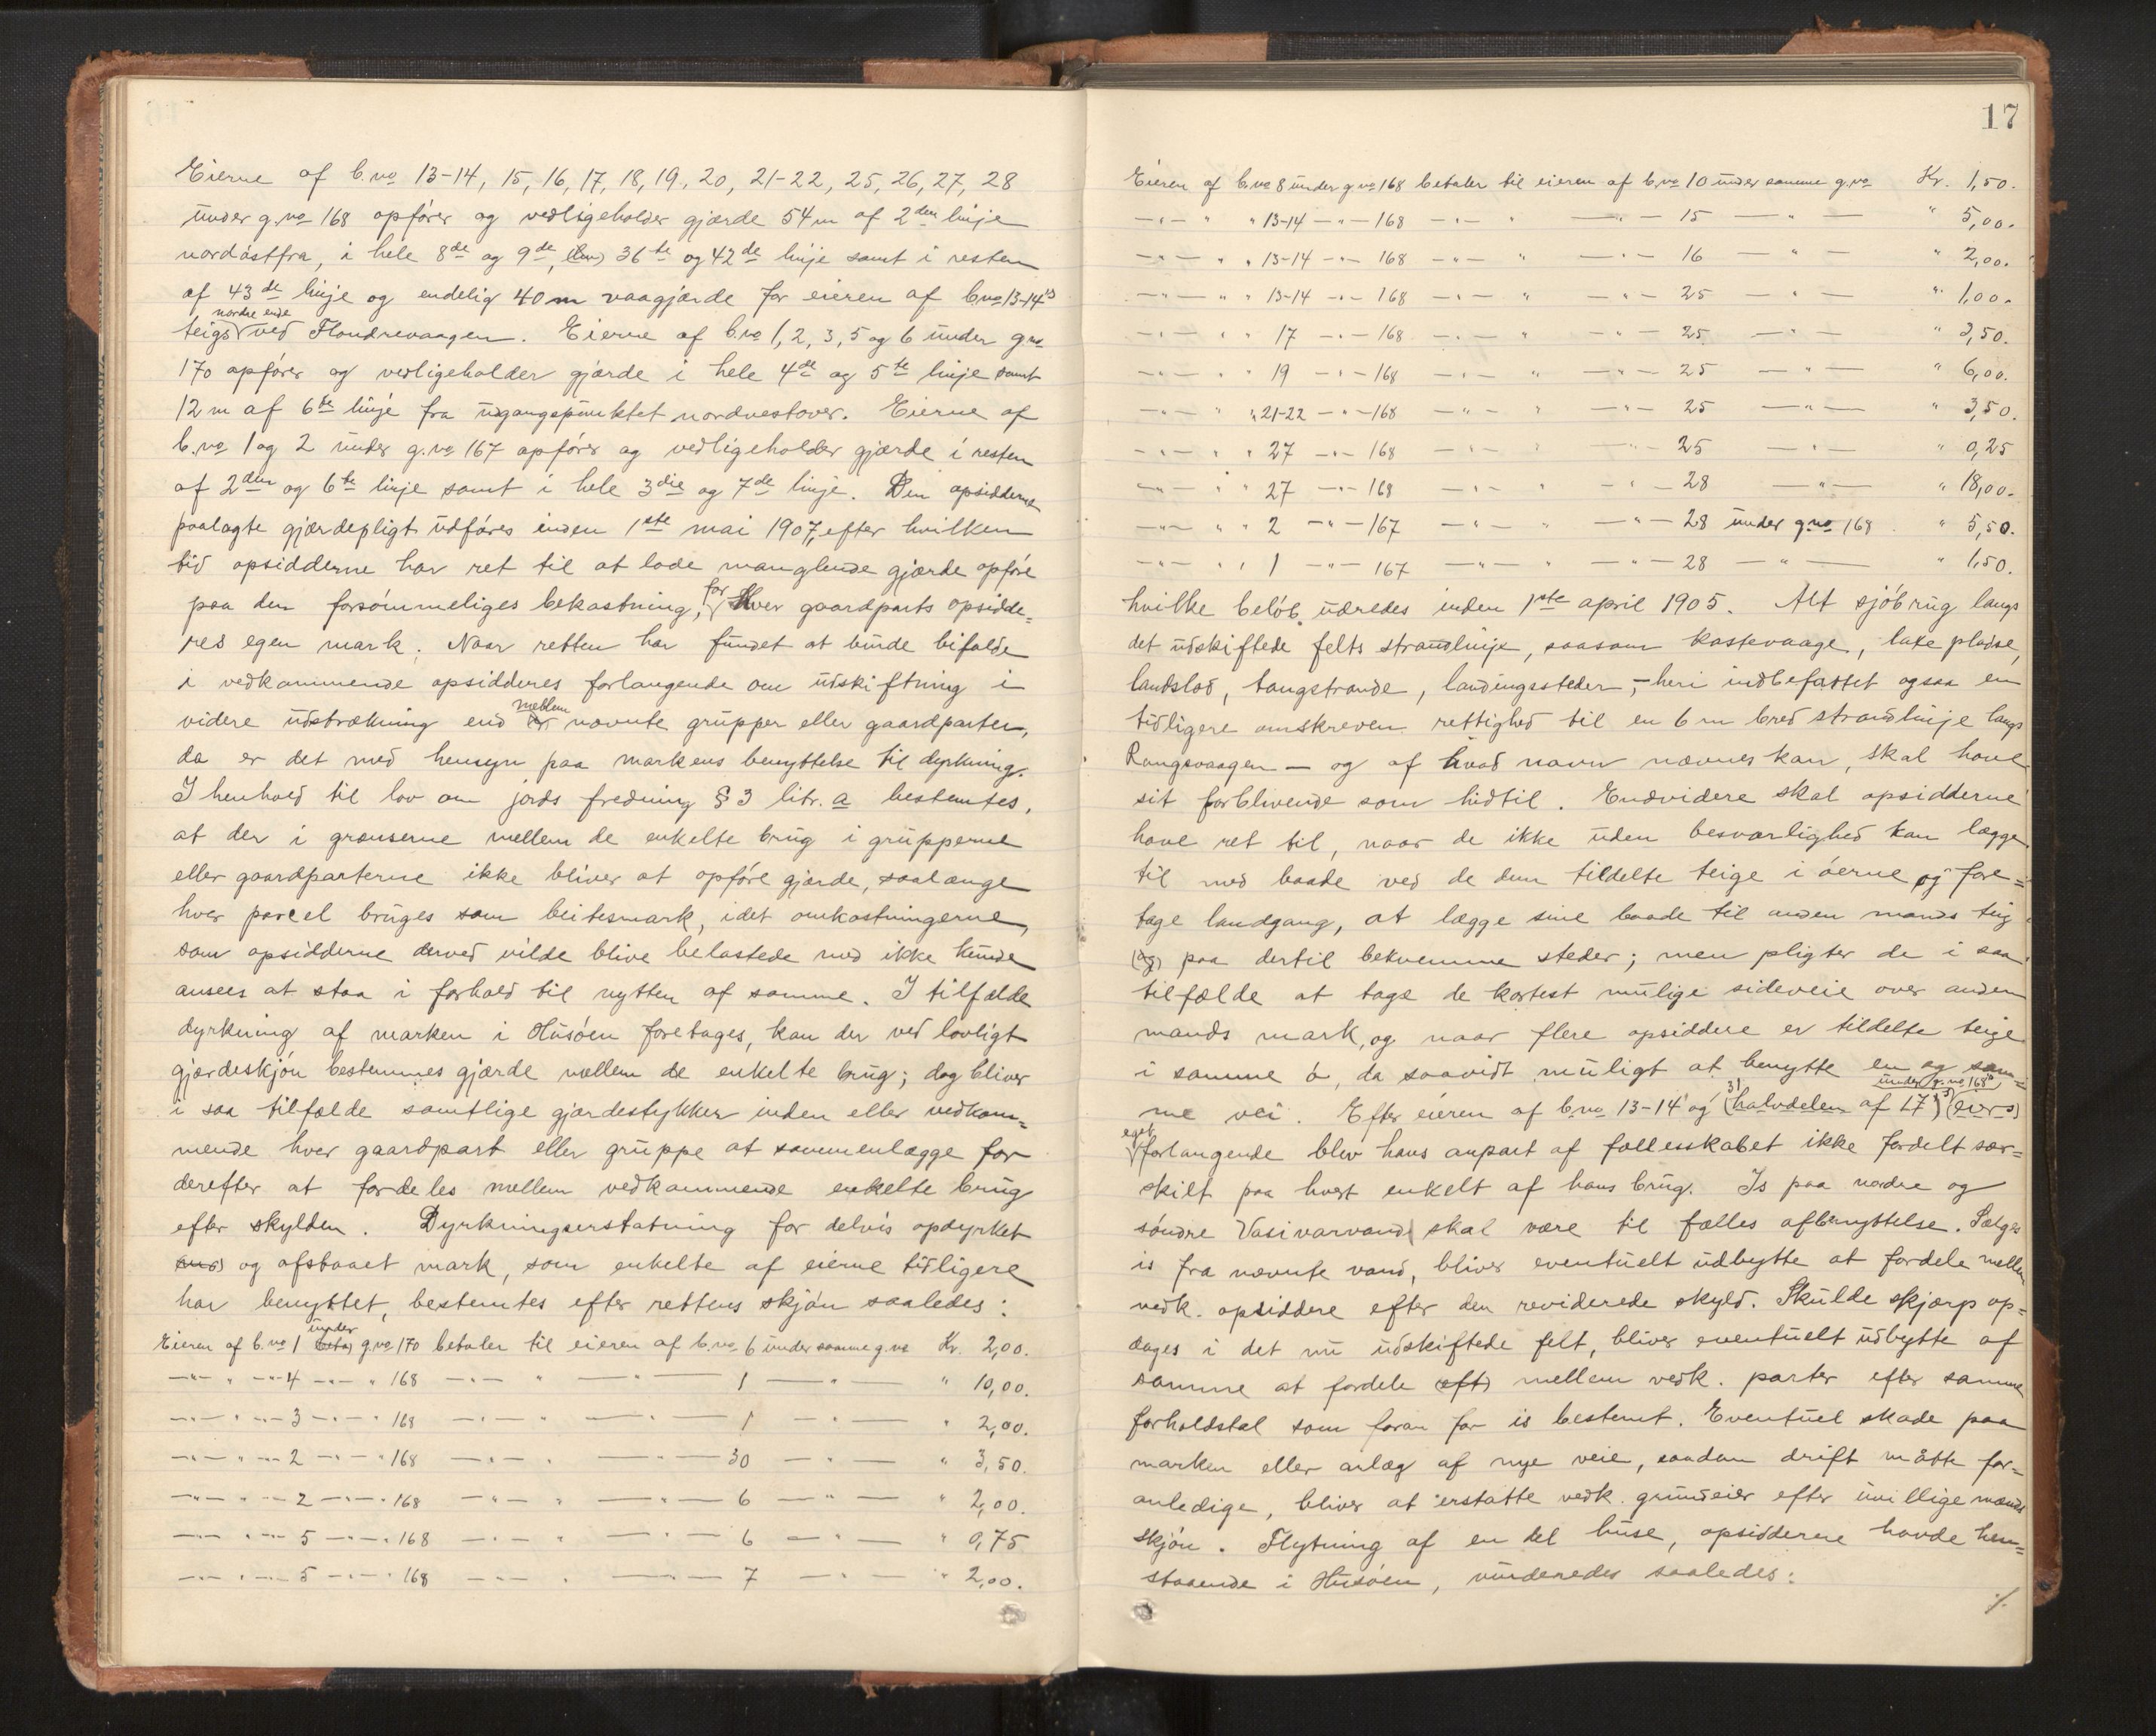 Eierne af b.no 13-14, 15, 16, 17, 18, 19, 20, 21-22, 25, 26, 27, 28
under g.no 168 opfører og vedligeholder gjærde 54 m af 2den linje
nordøstfra, i hele 8de og 9de, (den) 36te og 42de linje samt i resten
af 43de linje og endelig 40 m vaagjærde for eieren af b.no 13-14's
nordre ende
teigs ved Flondrevaagen. Eierne af b.no 1, 2, 3, 5 og 6 under g.no
170 opfører og vedligeholder gjærde i hele 4de og 5te linje samt
12 m af 6te linje fra udgangspunktet nordvestover. Eierne af
b.no 1 og 2 under g.no 167 opfører og vedligeholder gjærde i resten
af 2den og 6te linje samt i hele 3die og 7de linje. Den opsidderne
paalagte gjærdepligt udføres inden 1ste mai 1907, efter hvilken
tid opsidderne har ret til at lade manglende gjærde opføre
paa den forsømmeliges bekostning, for hver gaardparts opsidde=
res egen mark. Naar retten har fundet at burde bifalde
i vedkommende opsidderes forlangende om udskiftning i
videre udstrækning end mellem nævnte grupper eller gaardparter,
da er det med hensyn paa markens benyttelse til dyrkning.
I henhold til lov om jords fredning § 3 litr. a bestemtes,
at der i grænserne mellem de enkelte brug i grupperne
eller gaardparterne ikke bliver at opføre gjærde, saalænge
hver parcel bruges som beitesmark, idet omkostningerne,
som opsidderne derved vilde blive belastede med ikke kunde
ansees at staa i forhold til nytten af samme. I tilfælde
dyrkning af marken i Husøen foretages, kan der ved lovligt
gjærdeskjøn bestemmes gjærde mellem de enkelte brug; dog bliver
i saa tilfælde samtlige gjærdestykker inden eller vedkom=
mende hver gaardpart eller gruppe at sammenlægge for
derefter at fordeles mellem vedkommende enkelte brug
efter skylden. Dyrkningserstatning for delvis opdyrket
og afstaaet mark, som enkelte af eierne tidligere
har benyttet, bestemtes efter rettens skjøn saaledes:
Eieren af b.no 1 under g.no 170 betaler til eieren af b.no 6 under samme g.no Kr. 2,00.
—"— " —"— 4 —"— " 168 —"— " —"— 1 —"— " 10,00.
—"— " —"— 3 —"— " 168 —"— " —"— 1 —"— " 2,00.
—"— " —"— 2 —"— " 168 —"— " —"— 30 —"— " 3,50.
—"— " —"— 2 —"— " 168 —"— " —"— 6 —"— " 2,00.
—"— " —"— 5 —"— " 168 —"— " —"— 6 —"— " 0,75
—"— " —"— 5 —"— " 168 —"— " —"— 7 —"— " 2,00.
17
Eieren af b.no 8 under g.no 168 betaler til eieren af b.no 10 under samme g.no Kr. 1,50.
—"— " " 13-14 —"— 168 —"— " —"— 15 —"— " 5,00.
—"— " " 13-14 —"— 168 —"— " —"— 16 —"— " 2,00.
—"— " " 13-14 —"— 168 —"— " —"— 25 —"— " 1,00.
—"— " " 17 —"— 168 —"— " —"— 25 —"— " 3,50.
—"— " " 19 —"— 168 —"— " —"— 25 —"— " 6,00.
—"— " " 21-22 —"— 168 —"— " —"— 25 —"— " 3,50.
—"— " " 27 —"— 168 —"— " —"— 25 —"— " 0,25
—"— " " 27 —"— 168 —"— " —"— 28 —"— " 18,00.
—"— " " 2 —"— 167 —"— " —"— 28 under g.no 168 " 5,50.
—"— " " 1 —"— 167 —"— " —"— 28 —"— " 1,50.
hvilke beløb udredes inden 1ste april 1905. Alt sjøbrug langs
det udskiftede felts strandlinje, saasom kastevaage, laxepladse,
landslod, tangstrande, landingssteder, – heri indbefattet ogsaa en
tidligere omskreven rettighed til en 6 m bred strandlinje langs
Rongevaagen – og af hvad navn nævnes kan, skal have
sit forblivende som hidtil. Endvidere skal opsidderne
have ret til, naar de ikke uden besværlighed kan lægge
til med baade ved de dem tildelte teige i øerne og fore=
tage landgang, at lægge sine baade til anden mands teig
(og) paa dertil bekvemme steder; men pligter de i saa
tilfælde at tage de kortest mulige sideveie over anden
mands mark, og naar flere opsiddere er tildelte teige
i samme ø, da saavidt muligt at benytte en og sam=
under g.no 168
me vei. Efter eieren af b.no 13-14 og (halvdelen af 17) (eiers)
eget
forlangende blev hans anpart af fællesskabet ikke fordelt sær=
skilt paa hvert enkelt af hans brug. Is paa nordre og
søndre Vasivarvand skal være til fælles afbenyttelse. Sælges
is fra nævnte vand, bliver eventuelt udbytte at fordele mellem
vedk. opsiddere efter den reviderede skyld. Skulde skjærp op=
dages i det nu udskiftede felt, bliver eventuelt udbytte af
samme at fordele (eft) mellem vedk. parter efter samme
forholdstal som foran for is bestemt. Eventuel skade paa
marken eller anlæg af nye veie, saadan drift måtte for=
anledige, bliver at erstatte vedk. grundeier efter uvillige mænds
skjøn. Flytning af en del huse, opsidderne havde hen=
staaende i Husøen, vurderedes saaledes:
./.